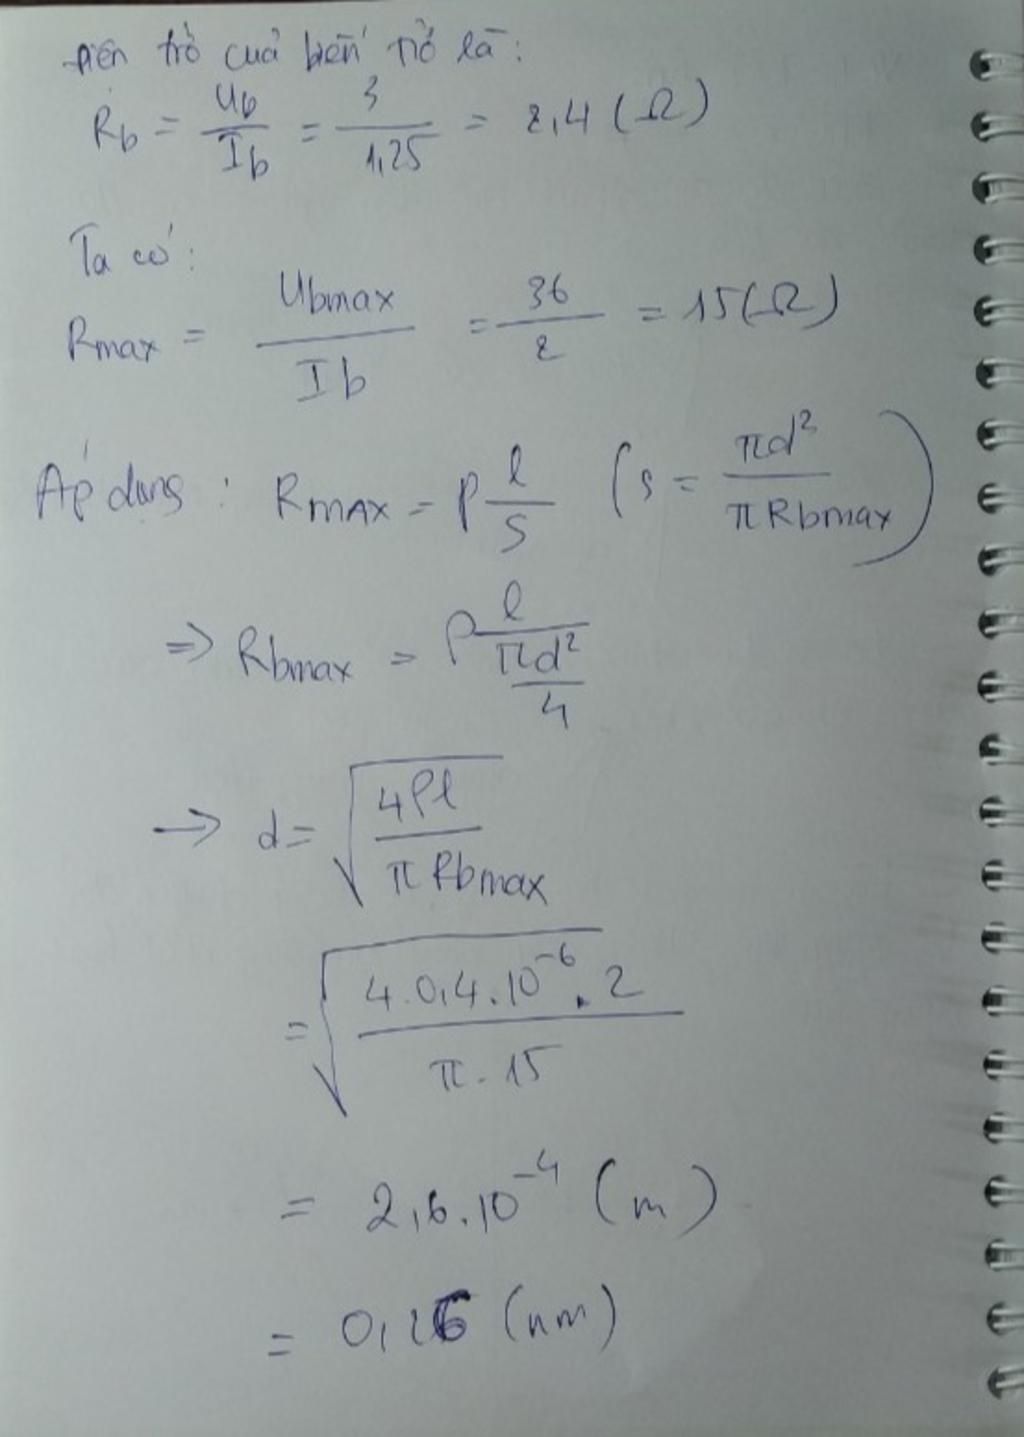 Điện trở của biến trở là:
Rb = Ub/Ib = 3/1,25 = 2,4 (Ω)
Ta có:
Rmax = Ubmax/Ib = 36/2 = 15(Ω)
Áp dụng : RMAX = ρ l/S (s = πd²/πRbmax)
=> Rbmax = ρ l/(πd²/4)
-> d = √(4ρl/πRbmax)
= √(4.0,4.10⁻⁶.2/π.15)
= 2,6.10⁻⁴ (m)
= 0,26 (nm)